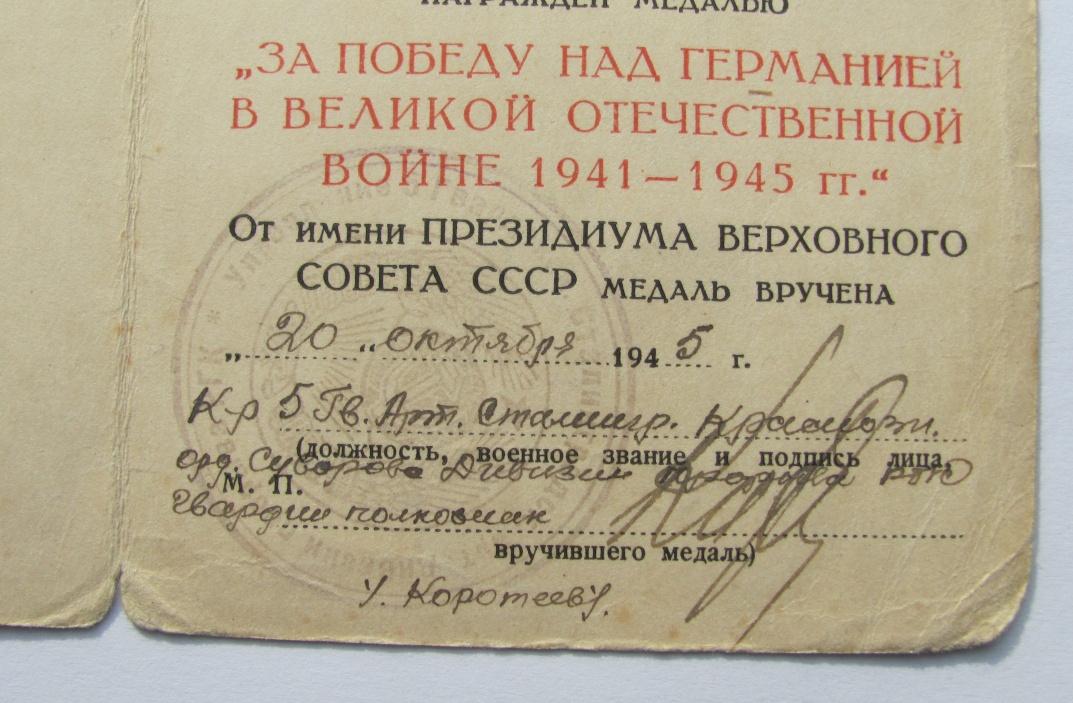 НАГРАЖДЕН МЕДАЛЬЮ
„ЗА ПОБЕДУ НАД ГЕРМАНИЕЙ
В ВЕЛИКОЙ ОТЕЧЕСТВЕННОЙ
ВОЙНЕ 1941—1945 гг.“
От имени ПРЕЗИДИУМА ВЕРХОВНОГО
СОВЕТА СССР МЕДАЛЬ ВРУЧЕНА
„ 20 „ октября 1945 г.
К-р 5 Гв. Арт. Сталингр. Краснозн.
(должность, военное звание и подпись лица,
орд. Суворова Дивизии
М. П.
Гвардии полковник
вручившего медаль)
/. Коротеев/.